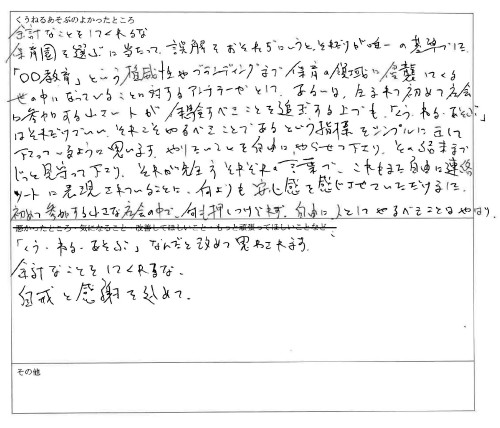 くうねるあそぶのよかったところ
余計なことをしてくれるな
保育園を選ぶに当たって、誤解をおそれずにいうと、それだけが唯一の基準でした。
「〇〇教育」という権威性やブランディングまで保育の領域に侵襲してくる
世の中になっていることに対するアンチテーゼとして、あるいは、生まれて初めて社会
に参加する小さいヒトが保全すべきことを追求する上でも、「くう・ねる・あそぶ」
はそれだけでいい、それこそやるべきことであるという指標をシンプルに正して
下さっているように思います。やりたいことを自由に、やらせて下さり、その結末まで
じっと見守って下さり、それが先生それぞれの言葉で、これもまた自由に連絡
ノートに表現されていることに、何よりも安心感を感じさせていただけました。
初めて参加する小さな社会の中で、何も押しつけられず、自由に、人としてやるべきことはやはり、
悪かったところ・気になること・改善してほしいこと・もっと頑張ってほしいことなど
「くう・ねる・あそぶ」なんだと改めて思わされます。
余計なことをしてくれるな、
自戒と感謝を込めて。
その他